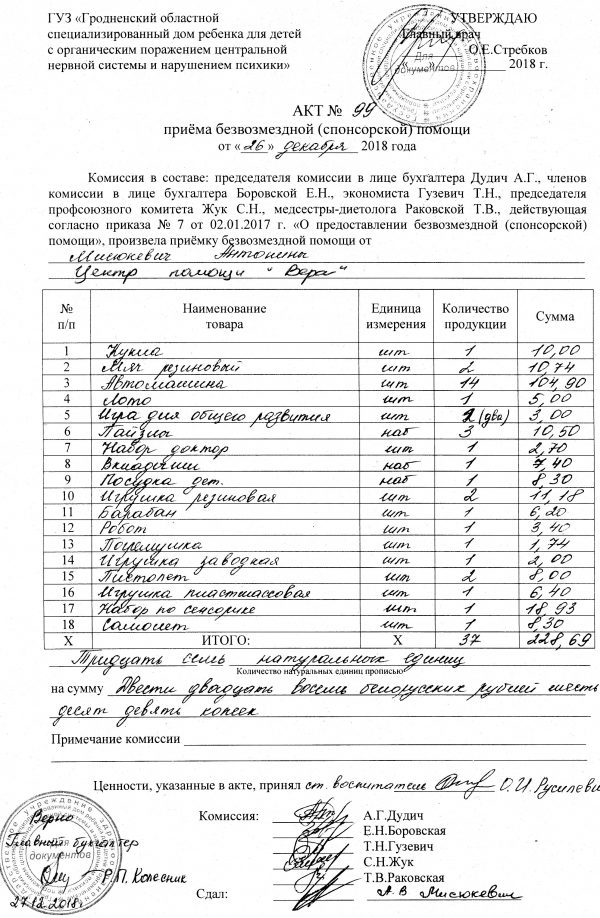 ГУЗ «Гродненский областной
специализированный дом ребенка для детей
с органическим поражением центральной
нервной системы и нарушением психики»
УТВЕРЖДАЮ
Главный врач
О.Е.Стребков
« » 2018 г.
Для документов
АКТ № 99
приёма безвозмездной (спонсорской) помощи
от «26» декабря 2018 года
Комиссия в составе: председателя комиссии в лице бухгалтера Дудич А.Г., членов
комиссии в лице бухгалтера Боровской Е.Н., экономиста Гузевич Т.Н., председателя
профсоюзного комитета Жук С.Н., медсестры-диетолога Раковской Т.В., действующая
согласно приказа № 7 от 02.01.2017 г. «О предоставлении безвозмездной (спонсорской)
помощи», произвела приёмку безвозмездной помощи от
Мисюкевич Антонины
Центр помощи "Вера"
№ п/п Наименование товара Единица измерения Количество продукции Сумма
1 Кукла шт 1 10,00
2 Мяч резиновый шт 2 10,74
3 Автомашина шт 14 104,90
4 Лото шт 1 5,00
5 Игра для общего развития шт 2 (два) 3,00
6 Пайзлы наб 3 10,50
7 Набор доктор шт 1 2,70
8 Вкладыши наб 1 7,40
9 Посудка дет. наб 1 8,30
10 Игрушка резиновая шт 2 11,18
11 Барабан шт 1 6,20
12 Робот шт 1 3,40
13 Погремушка шт 1 1,74
14 Игрушка заводная шт 1 2,00
15 Пистолет шт 2 8,00
16 Игрушка пластмассовая шт 1 6,40
17 Набор по сенсорике шт 1 18,93
18 Самолет шт 1 8,30
Х ИТОГО: Х 37 228,69
Тридцать семь натуральных единиц
Количество натуральных единиц прописью
на сумму Двести двадцать восемь белорусских рублей шесть
десят девять копеек
Примечание комиссии
Ценности, указанные в акте, принял ст. воспитатель О.И.Русилевич
Комиссия: А.Г.Дудич
Е.Н.Боровская
Т.Н.Гузевич
С.Н.Жук
Т.В.Раковская
Сдал: А.В Мисюкевич
Верно
Главный бухгалтер
документов
Р.П. Колесник
27.12.2018г